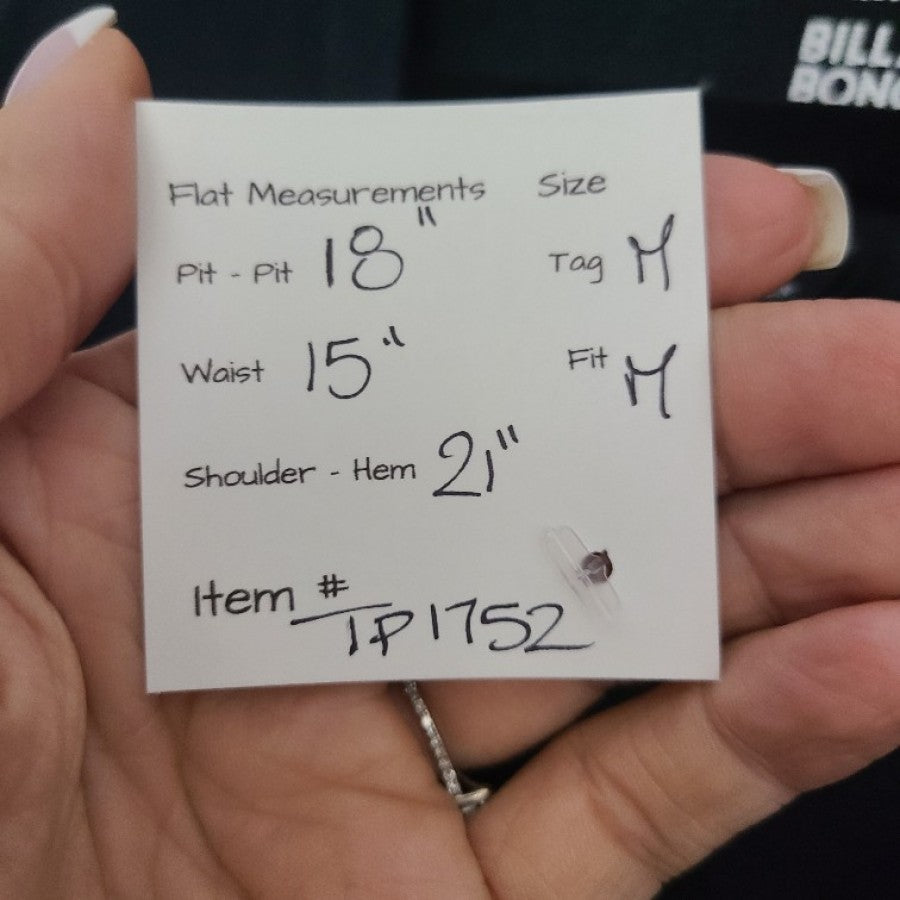 BILL
BONG
Flat Measurements Size
Pit - Pit 18" Tag M
Waist 15" Fit M
Shoulder - Hem 21"
Item # TP1752